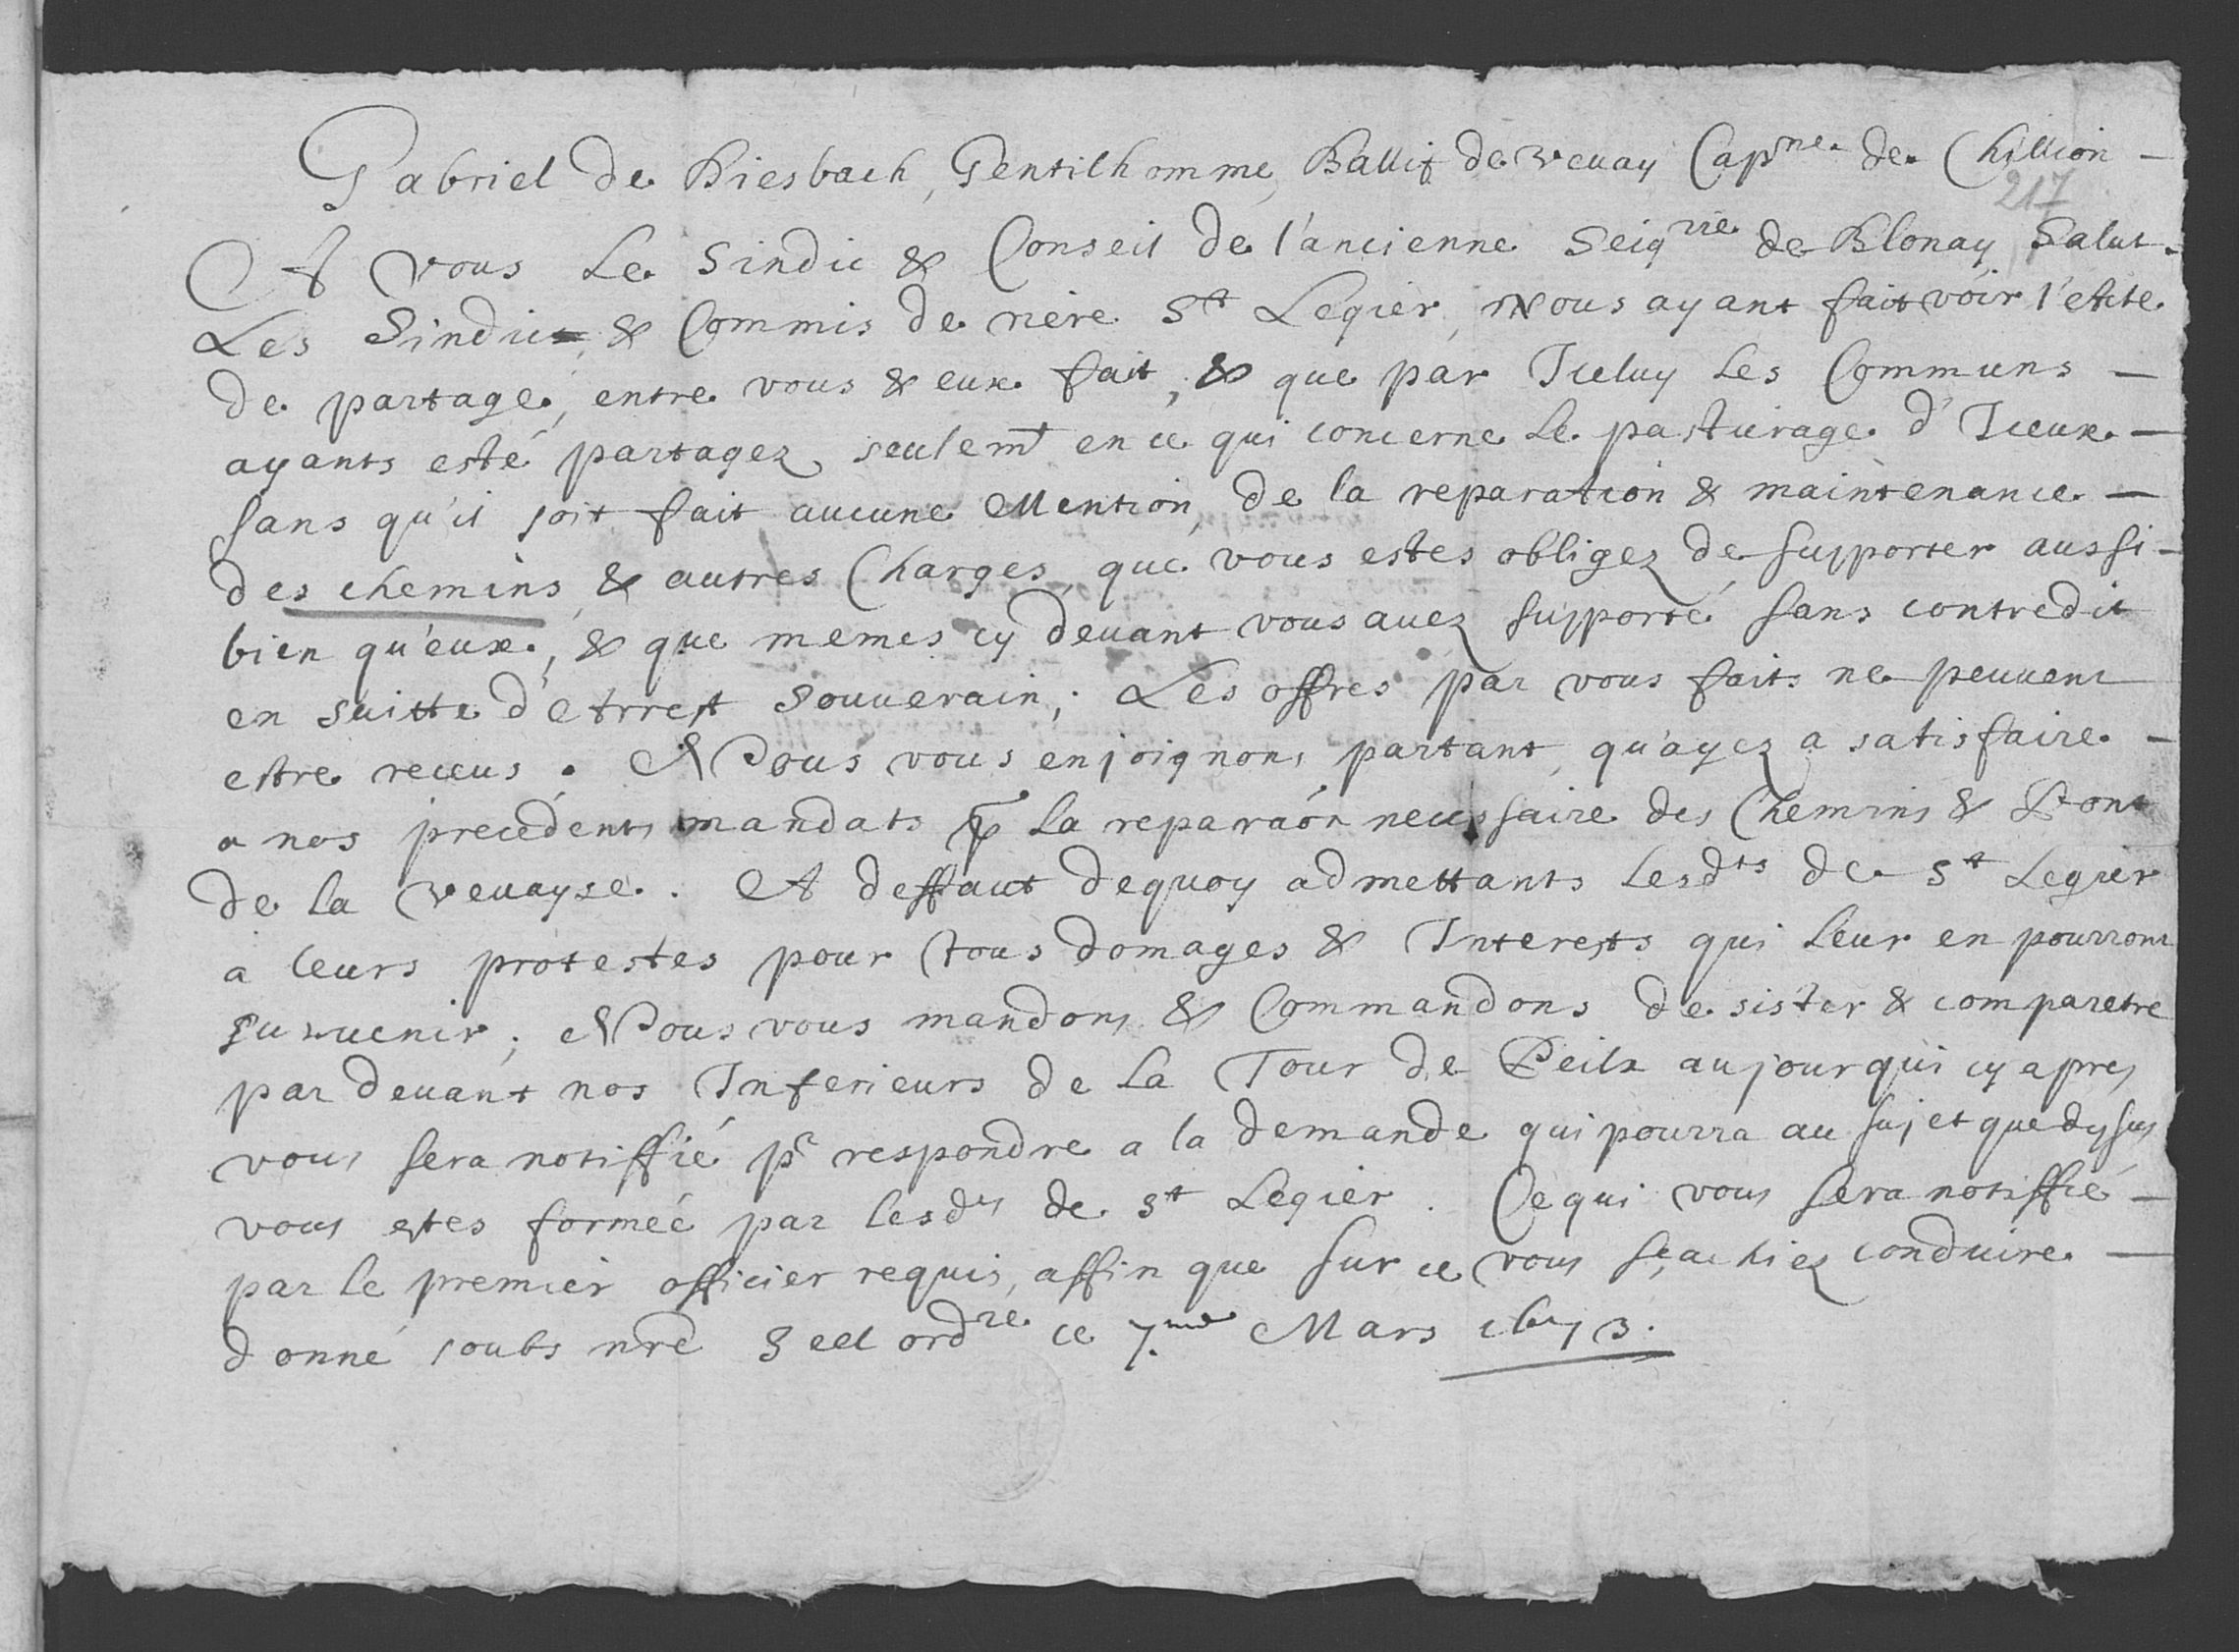 Gabriel de Diesbach, Gentilhomme, Ballif de Vevay Capne. de Chillion -
217
A vous Le Sindic & Conseil de l'ancienne Seigrie de Blonay Salut.
Les Sindic & Commis de riere St Legier, Nous ayant fait voir l'Acte
de partage, entre vous & eux fait, & que par Iceluy Les Communs -
ayants esté partagez seulemt en ce qui concerne Le pasturage d'Iceux -
sans qu'il soit fait aucune Mention, de la reparation & maintenance -
des chemins, & autres Charges, que vous estes obligez de supporter aussi -
bien qu'eux, & que memes cy devant vous avez supporté sans contredit
en suitte d'Arrest Souverain; Les offres par vous faits ne peuvent
estre receus. Nous vous enjoignons partant, qu'ayez a satisfaire -
a nos precedents mandats p La reparaon necessaire des Chemins & Pont
de la Vevayse. A deffaut dequoy admettants Lesdts de St Legier
a leurs protestes pour tous domages & Interests qui Leur en pourront
survenir; Nous vous mandons & Commandons de sister & comparetre
par devant nos Inferieurs de La Tour de Peilz au jour qui cy apres
vous sera notiffié pr respondre a la demande qui pourra au sujet que dysus
vous estes formée par lesds de St Legier. Ce qui vous sera notiffié -
par le premier officier requis, affin que sur ce vous sçachiez conduire -
donné soubs nre Seel ordre ce 7.me Mars 1673.